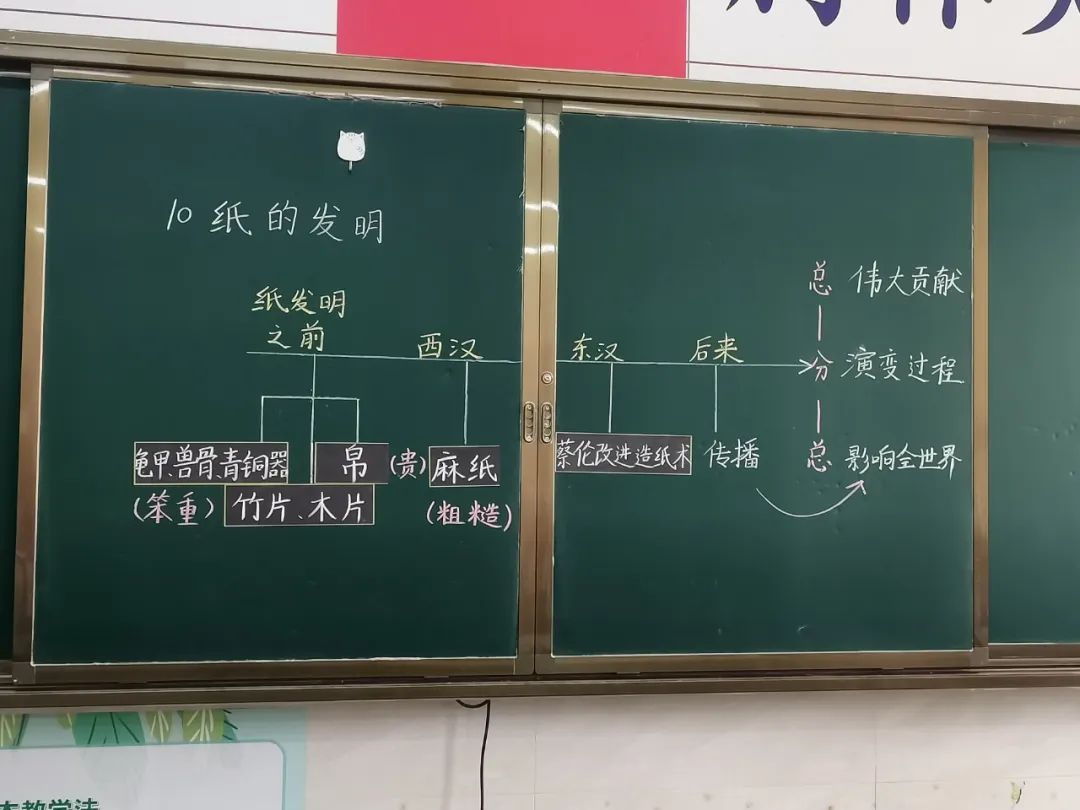 10 纸的发明
纸发明
之前
西汉
东汉
后来
龟甲、兽骨、青铜器
帛
(贵)
麻纸
蔡伦改进造纸术
传播
(笨重)
竹片、木片
(粗糙)
总 伟大贡献
分 演变过程
总 影响全世界
本教学法